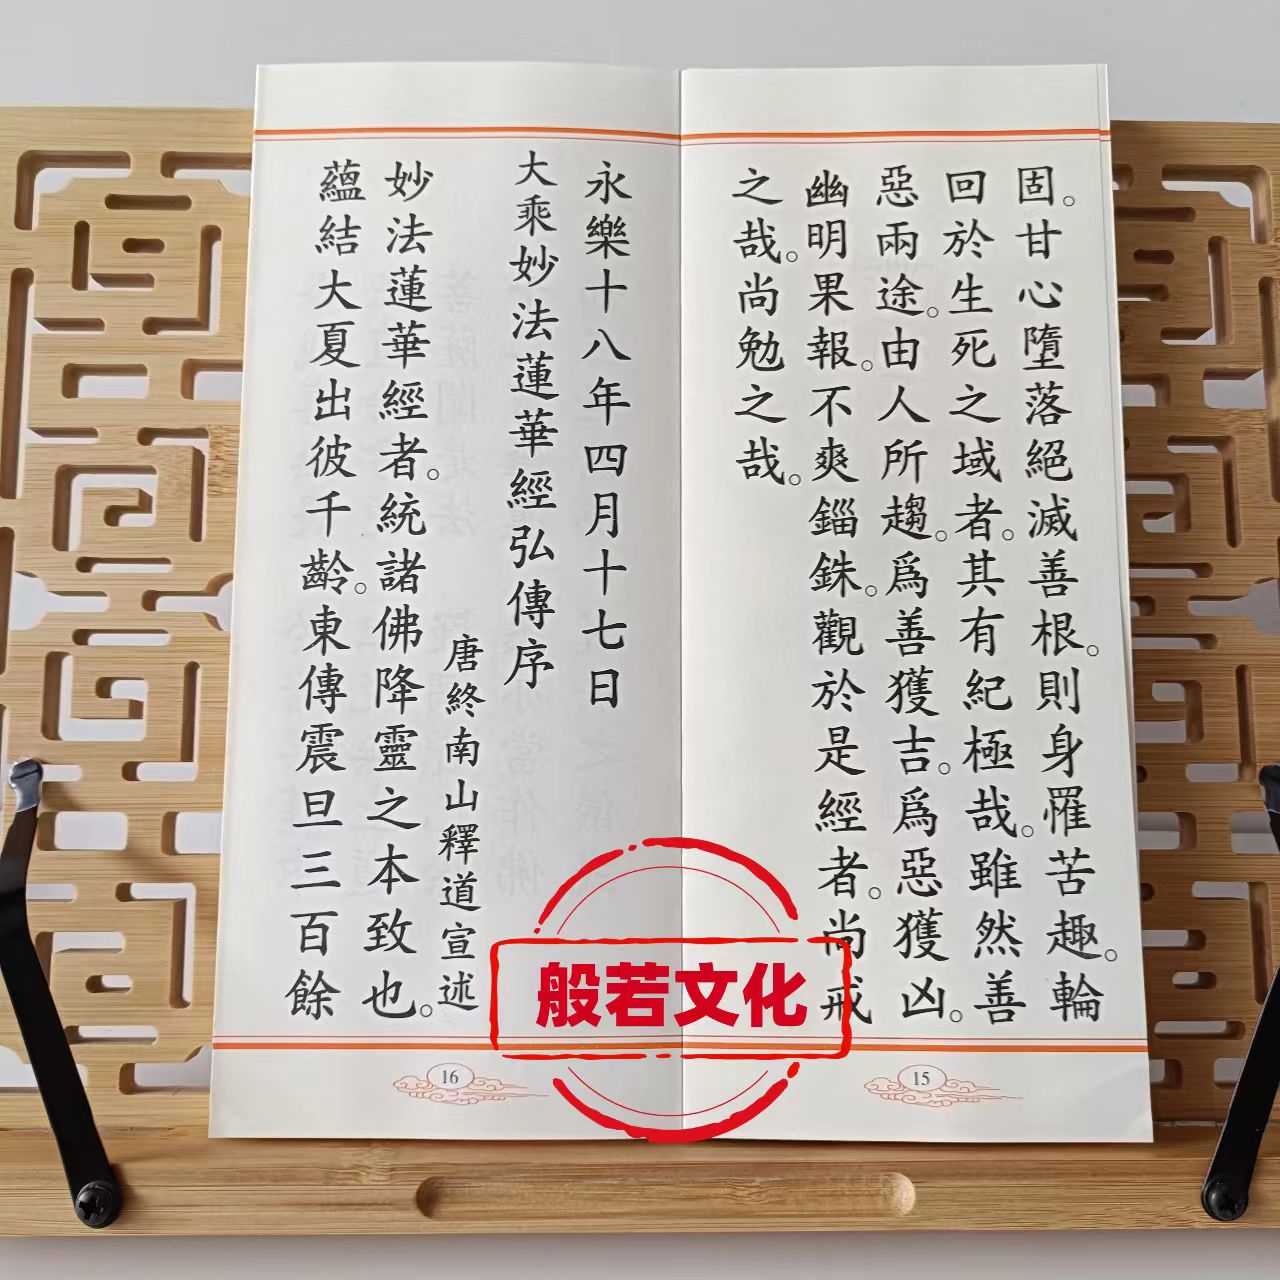 固。甘心墮落絕滅善根。則身罹苦趣。輪
回於生死之域者。其有紀極哉。雖然善
惡兩途。由人所趨。爲善獲吉。爲惡獲凶。
幽明果報。不爽錙銖。觀於是經者。尚戒
之哉。尚勉之哉。
15
永樂十八年四月十七日
大乘妙法蓮華經弘傳序
唐終南山釋道宣述
妙法蓮華經者。統諸佛降靈之本致也。
蘊結大夏出彼千齡。東傳震旦三百餘
16
般若文化